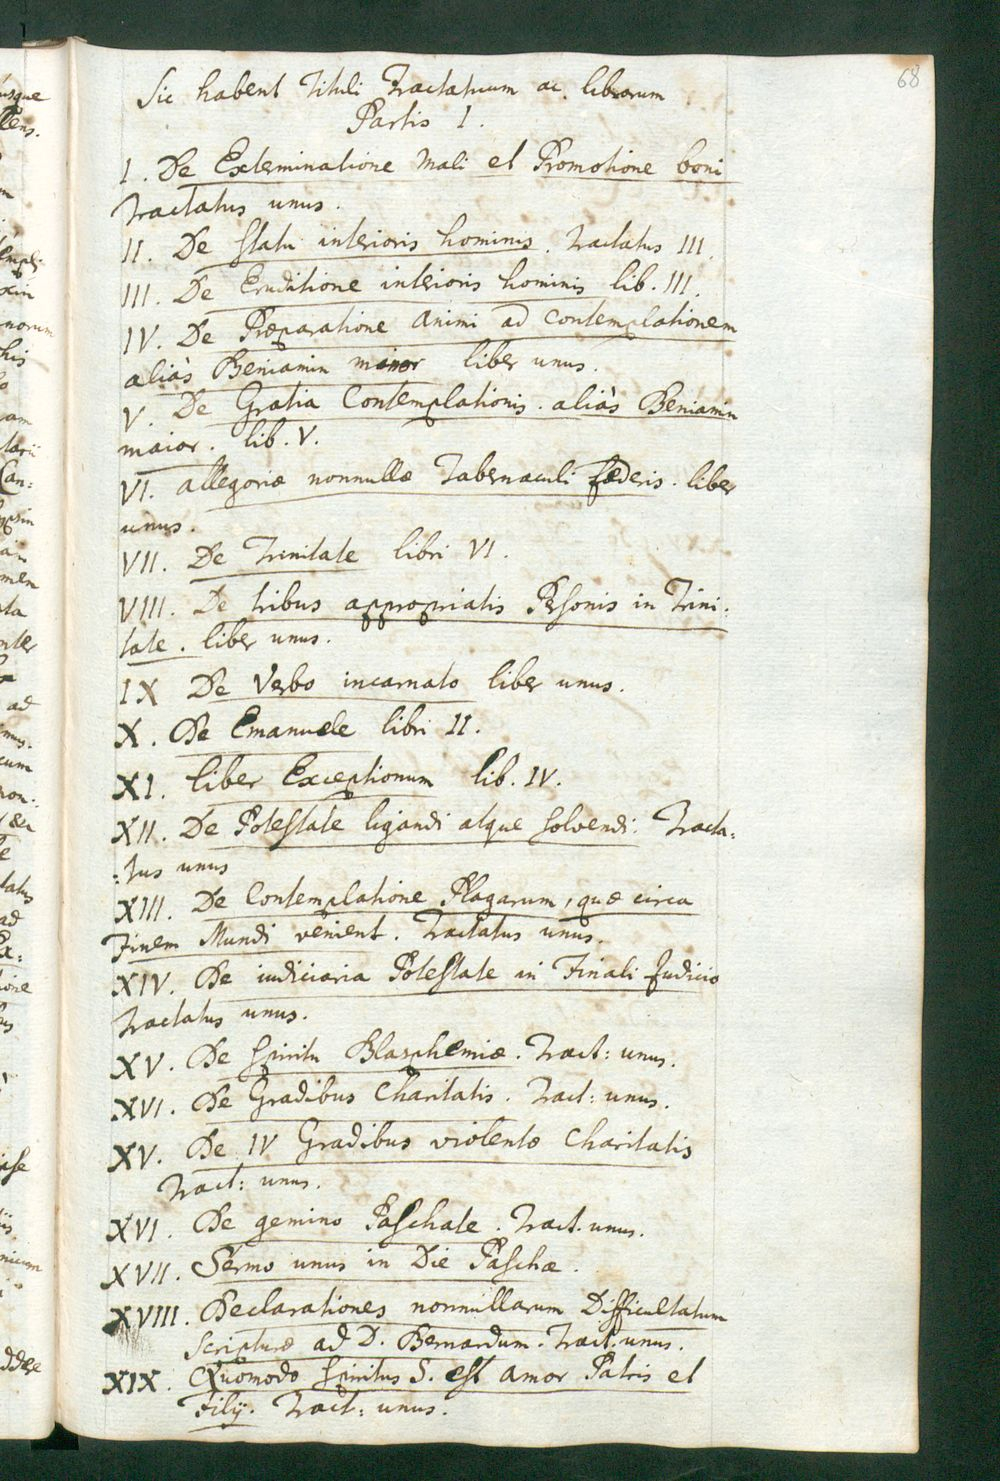 68
Sic habent Tituli Tractatuum ac librorum
Partis I.
I. De Exterminatione Mali et Promotione boni
Tractatus unus.
II. De statu interioris hominis. Tractatus III.
III. De Eruditione interioris hominis lib. III.
IV. De Præparatione Animi ad Contemplationem
aliàs Beniamin minor liber unus.
V. De Gratia Contemplationis. aliàs Beniamin
maior. lib. V.
VI. Allegoriæ nonnullæ Tabernaculi fœderis. liber
unus.
VII. De Trinitate libri VI.
VIII. De tribus appropriatis Personis in Trini:
tate. liber unus.
IX De Verbo incarnato liber unus.
X. De Emanuele libri II.
XI. liber Exceptionum lib. IV.
XII. De Potestate ligandi atque solvendi. Tracta:
:tus unus
XIII. De Contemplatione Plagarum, quæ circa
Finem Mundi venient. Tractatus unus.
XIV. De iudiciaria Potestate in Finali Judicio
Tractatus unus.
XV. De Spiritu Blasphemiæ. Tract: unus.
XVI. De Gradibus Charitatis. Tract: unus.
XV. De IV Gradibus violentæ Charitatis
Tract: unus.
XVI. De gemino Paschate. Tract. unus.
XVII. Sermo unus in Die Paschæ.
XVIII. Declarationes nonnullarum Difficultatum
Scripturæ ad D. Bernardum. Tract. unus.
XIX. Quomodo Spiritus S. est Amor Patris et
Filij. Tract: unus.